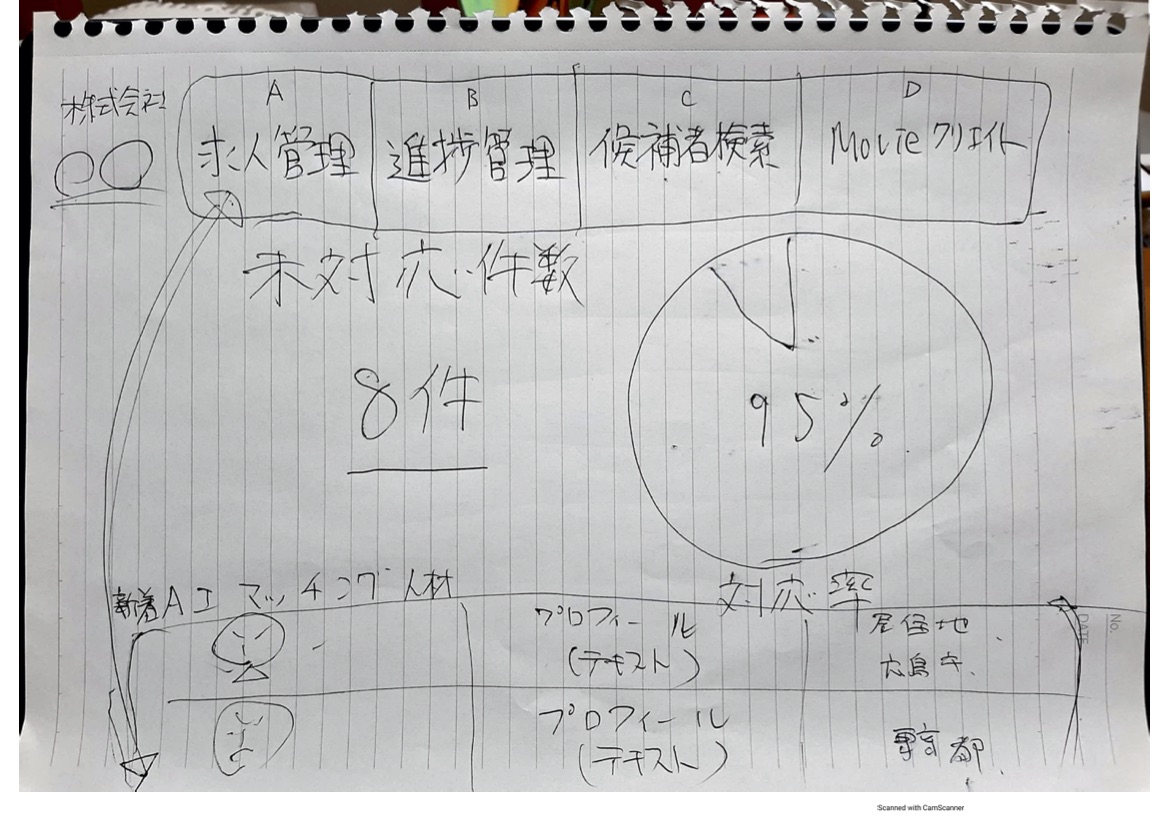 株式会社
○○
A
求人管理
B
進捗管理
C
候補者検索
D
Movieクリエイト
未対応件数
8件
95%
対応率
新着AIマッチング人材
プロフィール
(テキスト)
居住地
広島市
プロフィール
(テキスト)
東京都
No.
DATE
Scanned with CamScanner